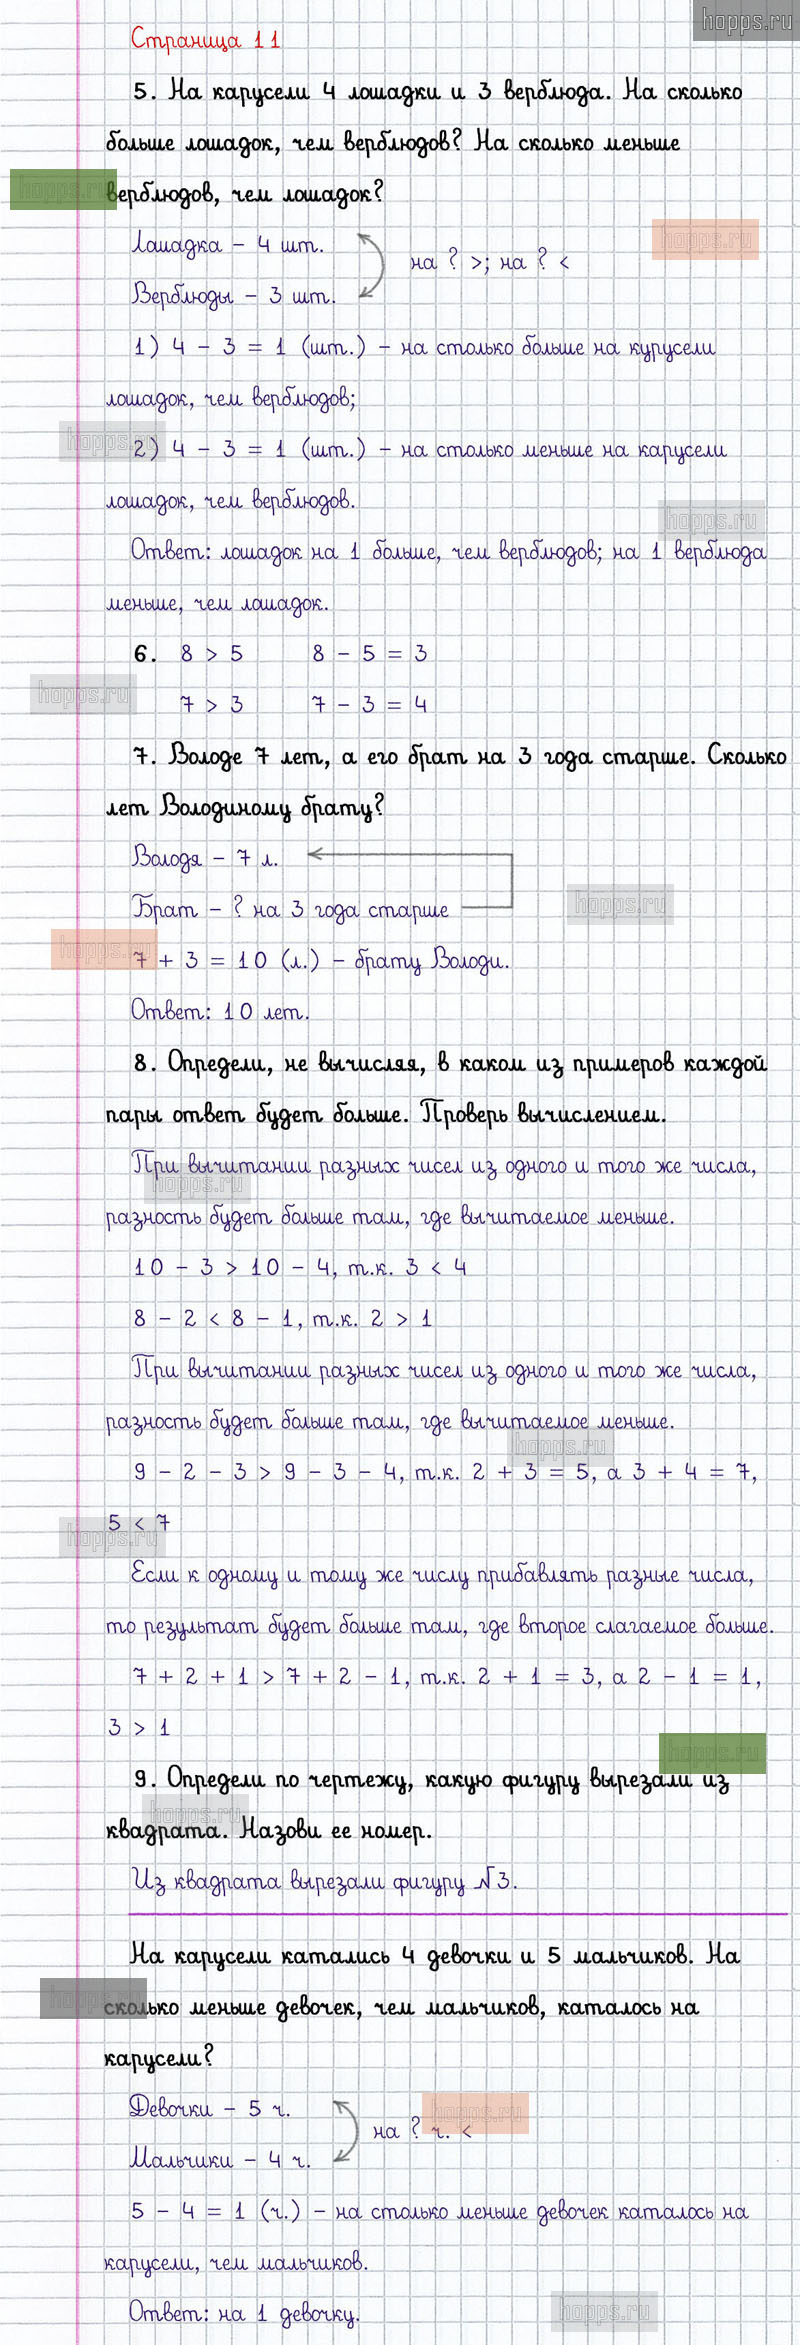 hopps.ru
Страница 11
5. На карусели 4 лошадки и 3 верблюда. На сколько
больше лошадок, чем верблюдов? На сколько меньше
hopps.ru
верблюдов, чем лошадок?
Лошадка – 4 шт.
hopps.ru
на ? >; на ? <
Верблюды – 3 шт.
1) 4 – 3 = 1 (шт.) – на столько больше на курусели
лошадок, чем верблюдов;
hopps.ru
2) 4 – 3 = 1 (шт.) – на столько меньше на карусели
лошадок, чем верблюдов.
hopps.ru
Ответ: лошадок на 1 больше, чем верблюдов; на 1 верблюда
меньше, чем лошадок.
6. 8 > 5 8 – 5 = 3
hopps.ru
7 > 3 7 – 3 = 4
7. Володе 7 лет, а его брат на 3 года старше. Сколько
лет Володиному брату?
Володя – 7 л.
Брат – ? на 3 года старше
hopps.ru
hopps.ru
7 + 3 = 10 (л.) – брату Володи.
Ответ: 10 лет.
8. Определи, не вычисляя, в каком из примеров каждой
пары ответ будет больше. Проверь вычислением.
При вычитании разных чисел из одного и того же числа,
hopps.ru
разность будет больше там, где вычитаемое меньше.
10 – 3 > 10 – 4, т.к. 3 < 4
8 – 2 < 8 – 1, т.к. 2 > 1
При вычитании разных чисел из одного и того же числа,
разность будет больше там, где вычитаемое меньше.
hopps.ru
9 – 2 – 3 > 9 – 3 – 4, т.к. 2 + 3 = 5, а 3 + 4 = 7,
5 < 7
hopps.ru
Если к одному и тому же числу прибавлять разные числа,
то результат будет больше там, где второе слагаемое больше.
7 + 2 + 1 > 7 + 2 – 1, т.к. 2 + 1 = 3, а 2 – 1 = 1,
3 > 1
hopps.ru
9. Определи по чертежу, какую фигуру вырезали из
hopps.ru
квадрата. Назови ее номер.
Из квадрата вырезали фигуру №3.
На карусели катались 4 девочки и 5 мальчиков. На
hopps.ru
сколько меньше девочек, чем мальчиков, каталось на
карусели?
Девочки – 5 ч.
hopps.ru
на ? ч. <
Мальчики – 4 ч.
5 – 4 = 1 (ч.) – на столько меньше девочек каталось на
карусели, чем мальчиков.
Ответ: на 1 девочку.
hopps.ru